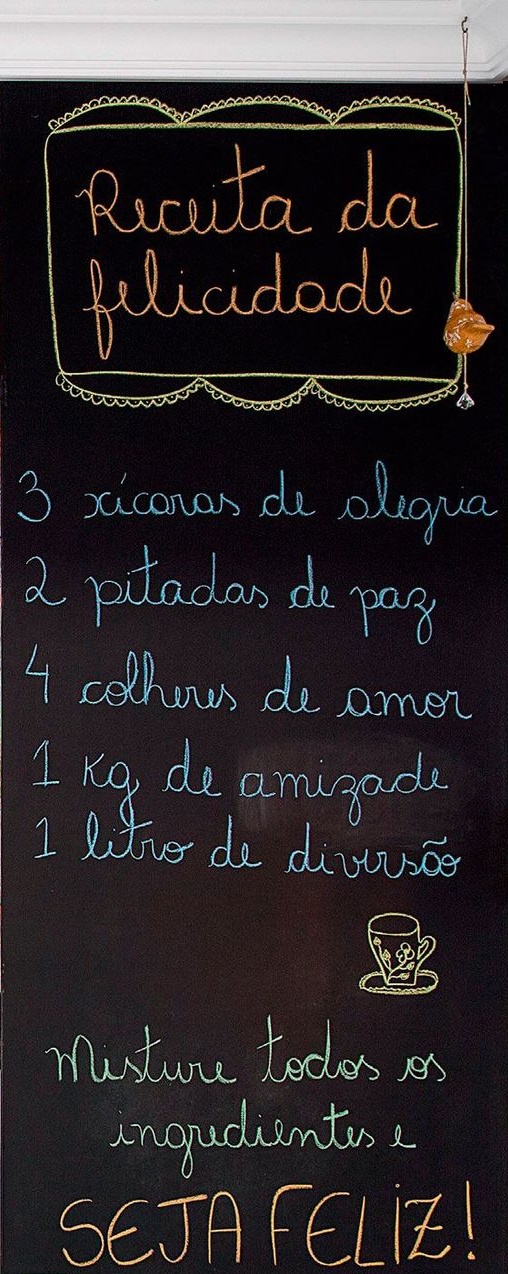 Receita da
felicidade
3 xícaras de alegria
2 pitadas de paz
4 colheres de amor
1 Kg de amizade
1 litro de diversão
Misture todos os
ingredientes e
SEJA FELIZ!